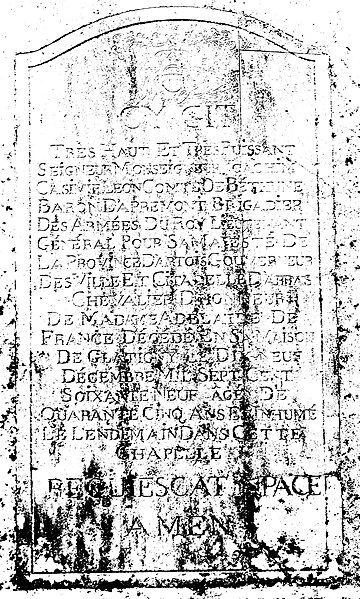 CY GIT
TRES HAUT ET TRES PUISSANT
SEIGNEUR MONSEIGNEUR
CASIMIR LEON COMTE DE BETHUNE
BARON D'APREMONT BRIGADIER
DES ARMÉES DU ROY LIEUTENANT
GÉNÉRAL POUR SA MAJESTÉ DE
LA PROVINCE D'ARTOIS GOUVERNEUR
DES VILLE ET CITADELLE D'ARRAS
CHEVALIER D'HONNEUR
DE MADAME ADELAIDE DE
FRANCE DÉCÉDÉ EN SA MAISON
DE GLATIGNY LE DIX NEUF
DÉCEMBRE MIL SEPT CENT
SOIXANTE NEUF AGÉ DE
QUARANTE CINQ ANS ET INHUMÉ
LE LENDEMAIN DANS CETTE
CHAPELLE
REQUIESCAT IN PACE
AMEN